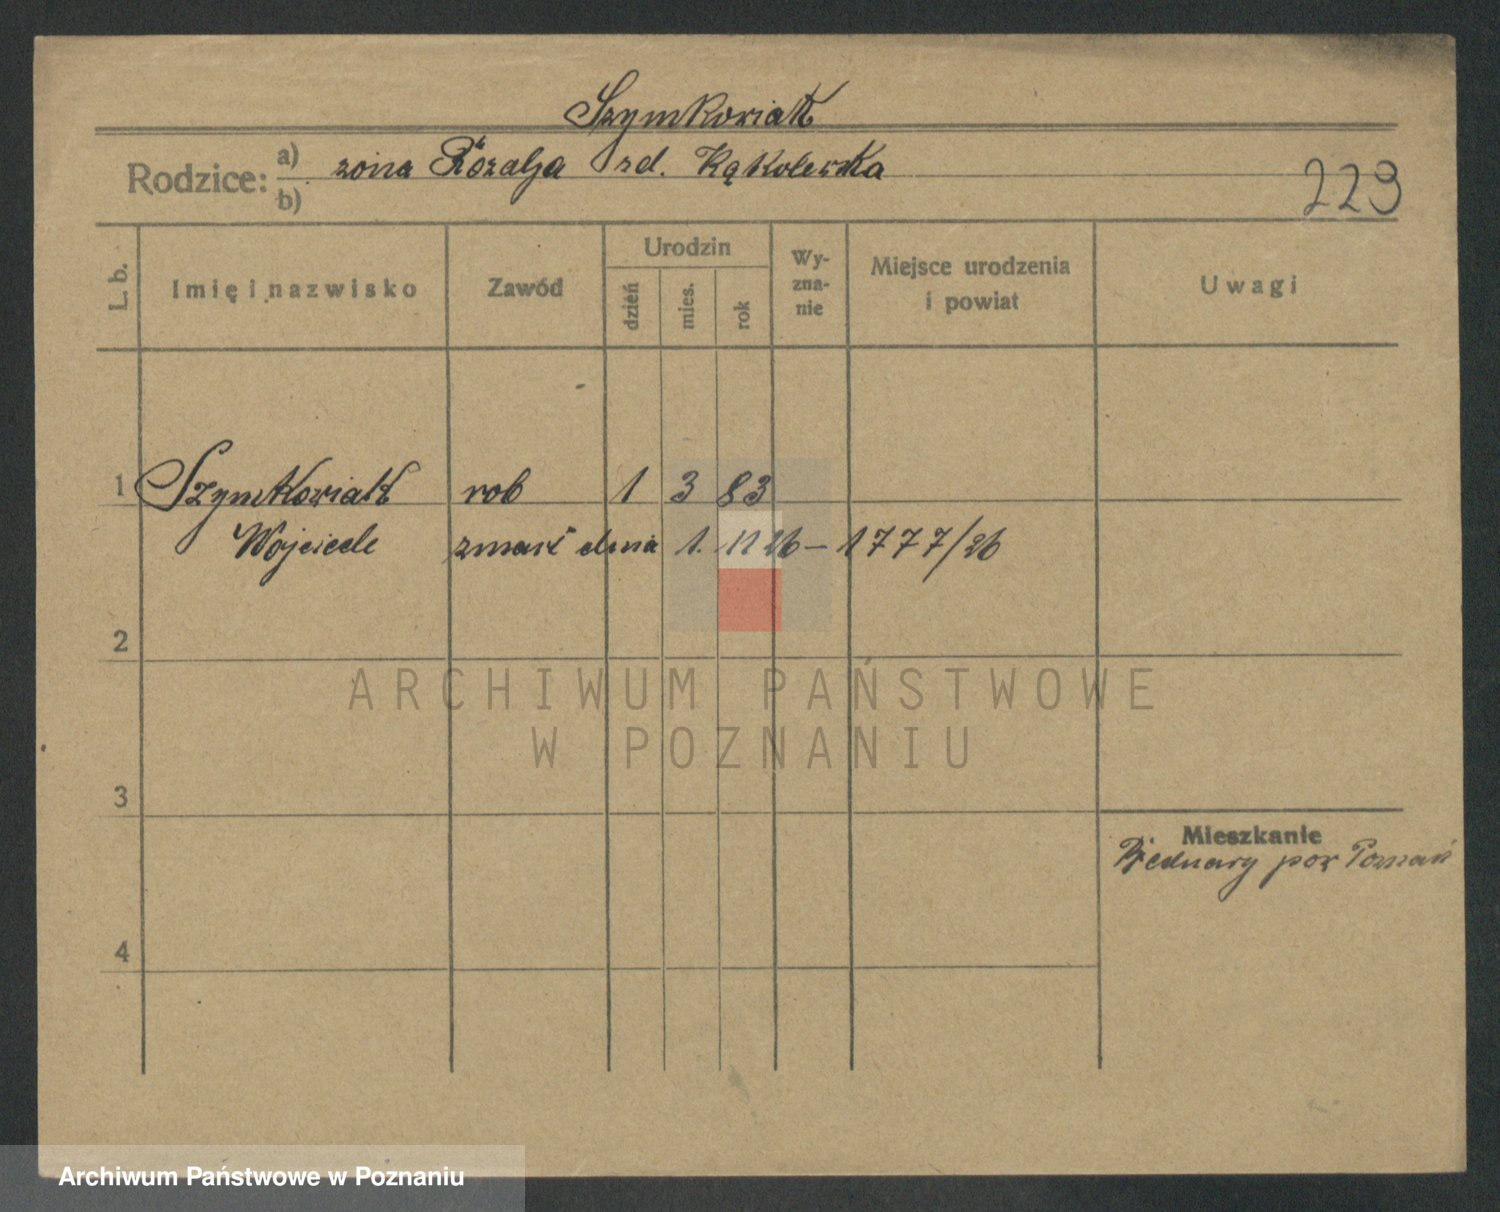 Szymkowiak
Rodzice: a) żona Rózalja zd. Kąkolewska
b)
229
L. b.
Imię i nazwisko
Zawód
Urodzin
dzień
mies.
rok
Wy-
zna-
nie
Miejsce urodzenia
i powiat
Uwagi
1 Szymkowiak rob 1 3 83
Wojciech zmarł dnia 1. 11 26 – 1777/26
2
ARCHIWUM PAŃSTWOWE
W POZNANIU
3
Mieszkanie
Bednary pow Poznań
4
Archiwum Państwowe w Poznaniu